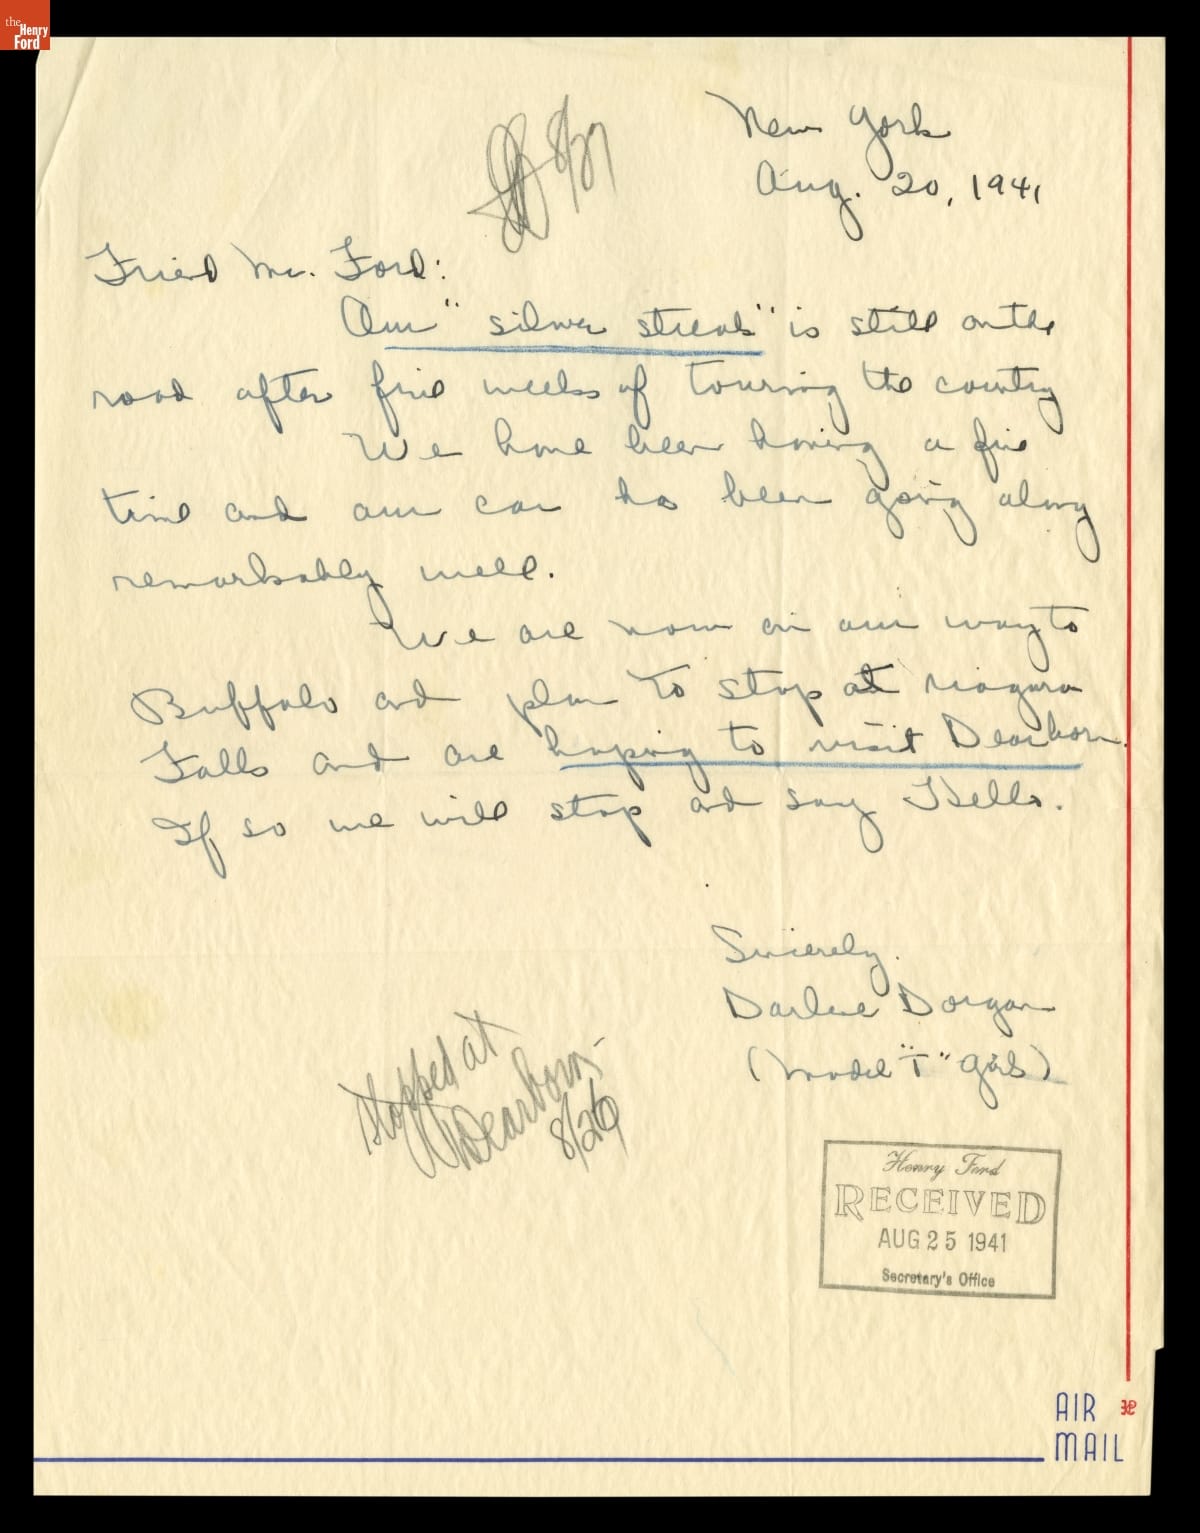 the
Henry
Ford
8/27
New York
Aug. 20, 1941
Friend Mr. Ford:
Our "silver streak" is still on the
road after five weeks of touring the country
We have been having a fine
time and our car has been going along
remarkably well.
We are now on our way to
Buffalo and plan to stop at Niagara
Falls and are hoping to visit Dearborn.
If so we will stop and say Hello.
Sincerely,
Darlene Dorgan
(Model "T" Girls)
Stopped at
Dearborn
8/26
Henry Ford
RECEIVED
AUG 25 1941
Secretary's Office
AIR
MAIL